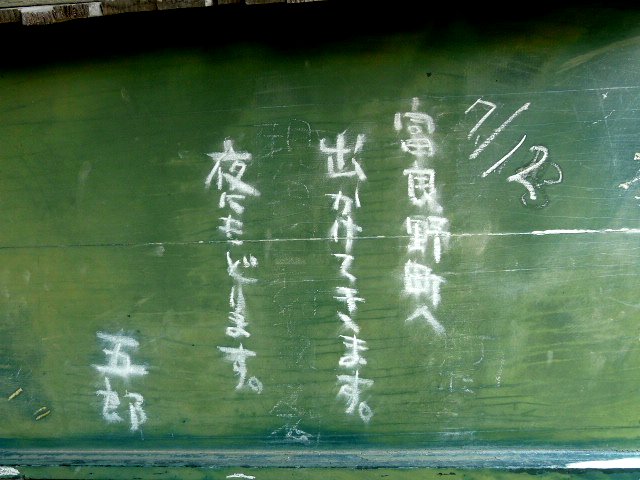 7/12
富良野町へ
出かけてきます。
夜にもどります。
五郎